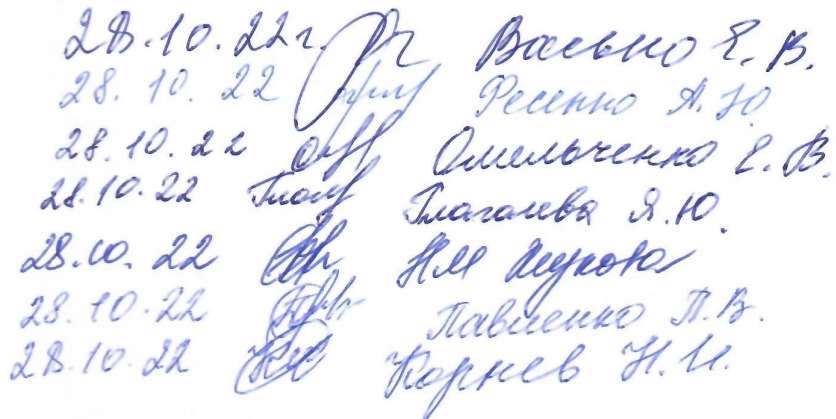 28.10.22г. Васько Е.В.
28.10.22 Фесенко А.Ю.
28.10.22 Омельченко Е.В.
28.10.22 Глаголева Я.Ю.
28.10.22 НМ Жукова
28.10.22 Павленко П.В.
28.10.22 Корнев Н.И.